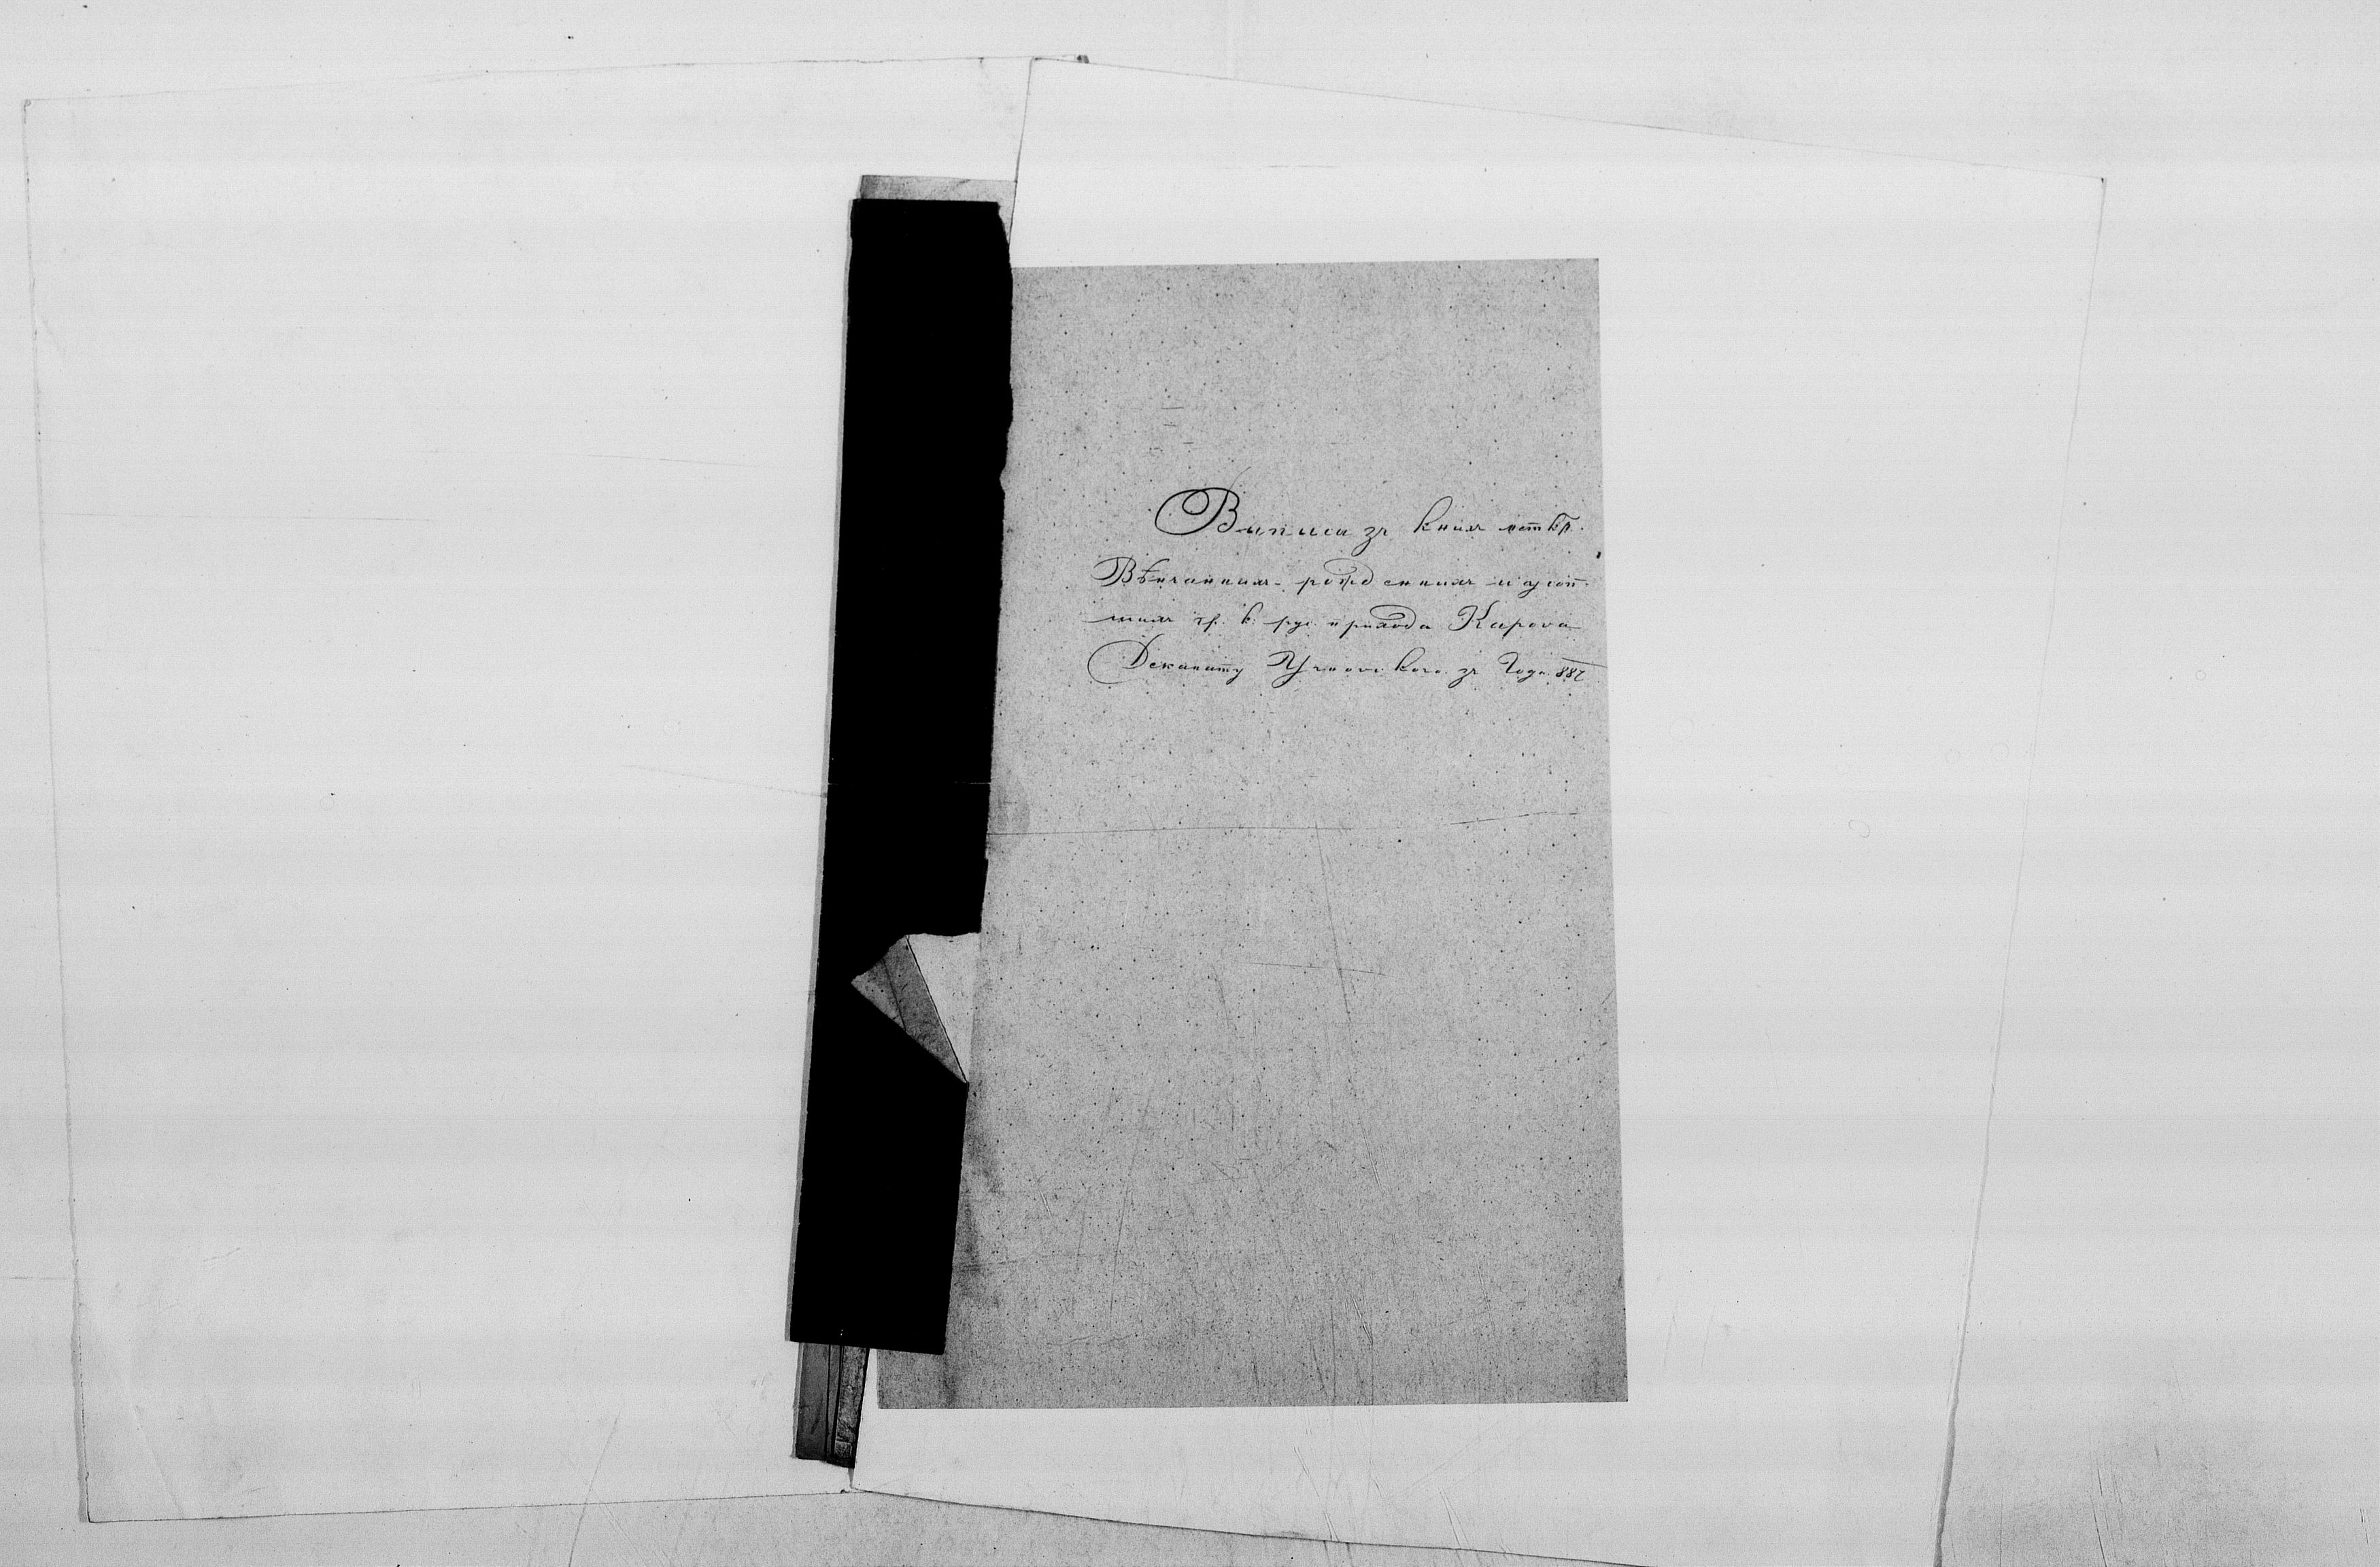 Выписи зъ книгъ метвкр.
Вѣнчанныхъ рожденныхъ и усоп.
шихъ гр. к. рус. прихода Карова
Деканату Угновского зъ Года 887